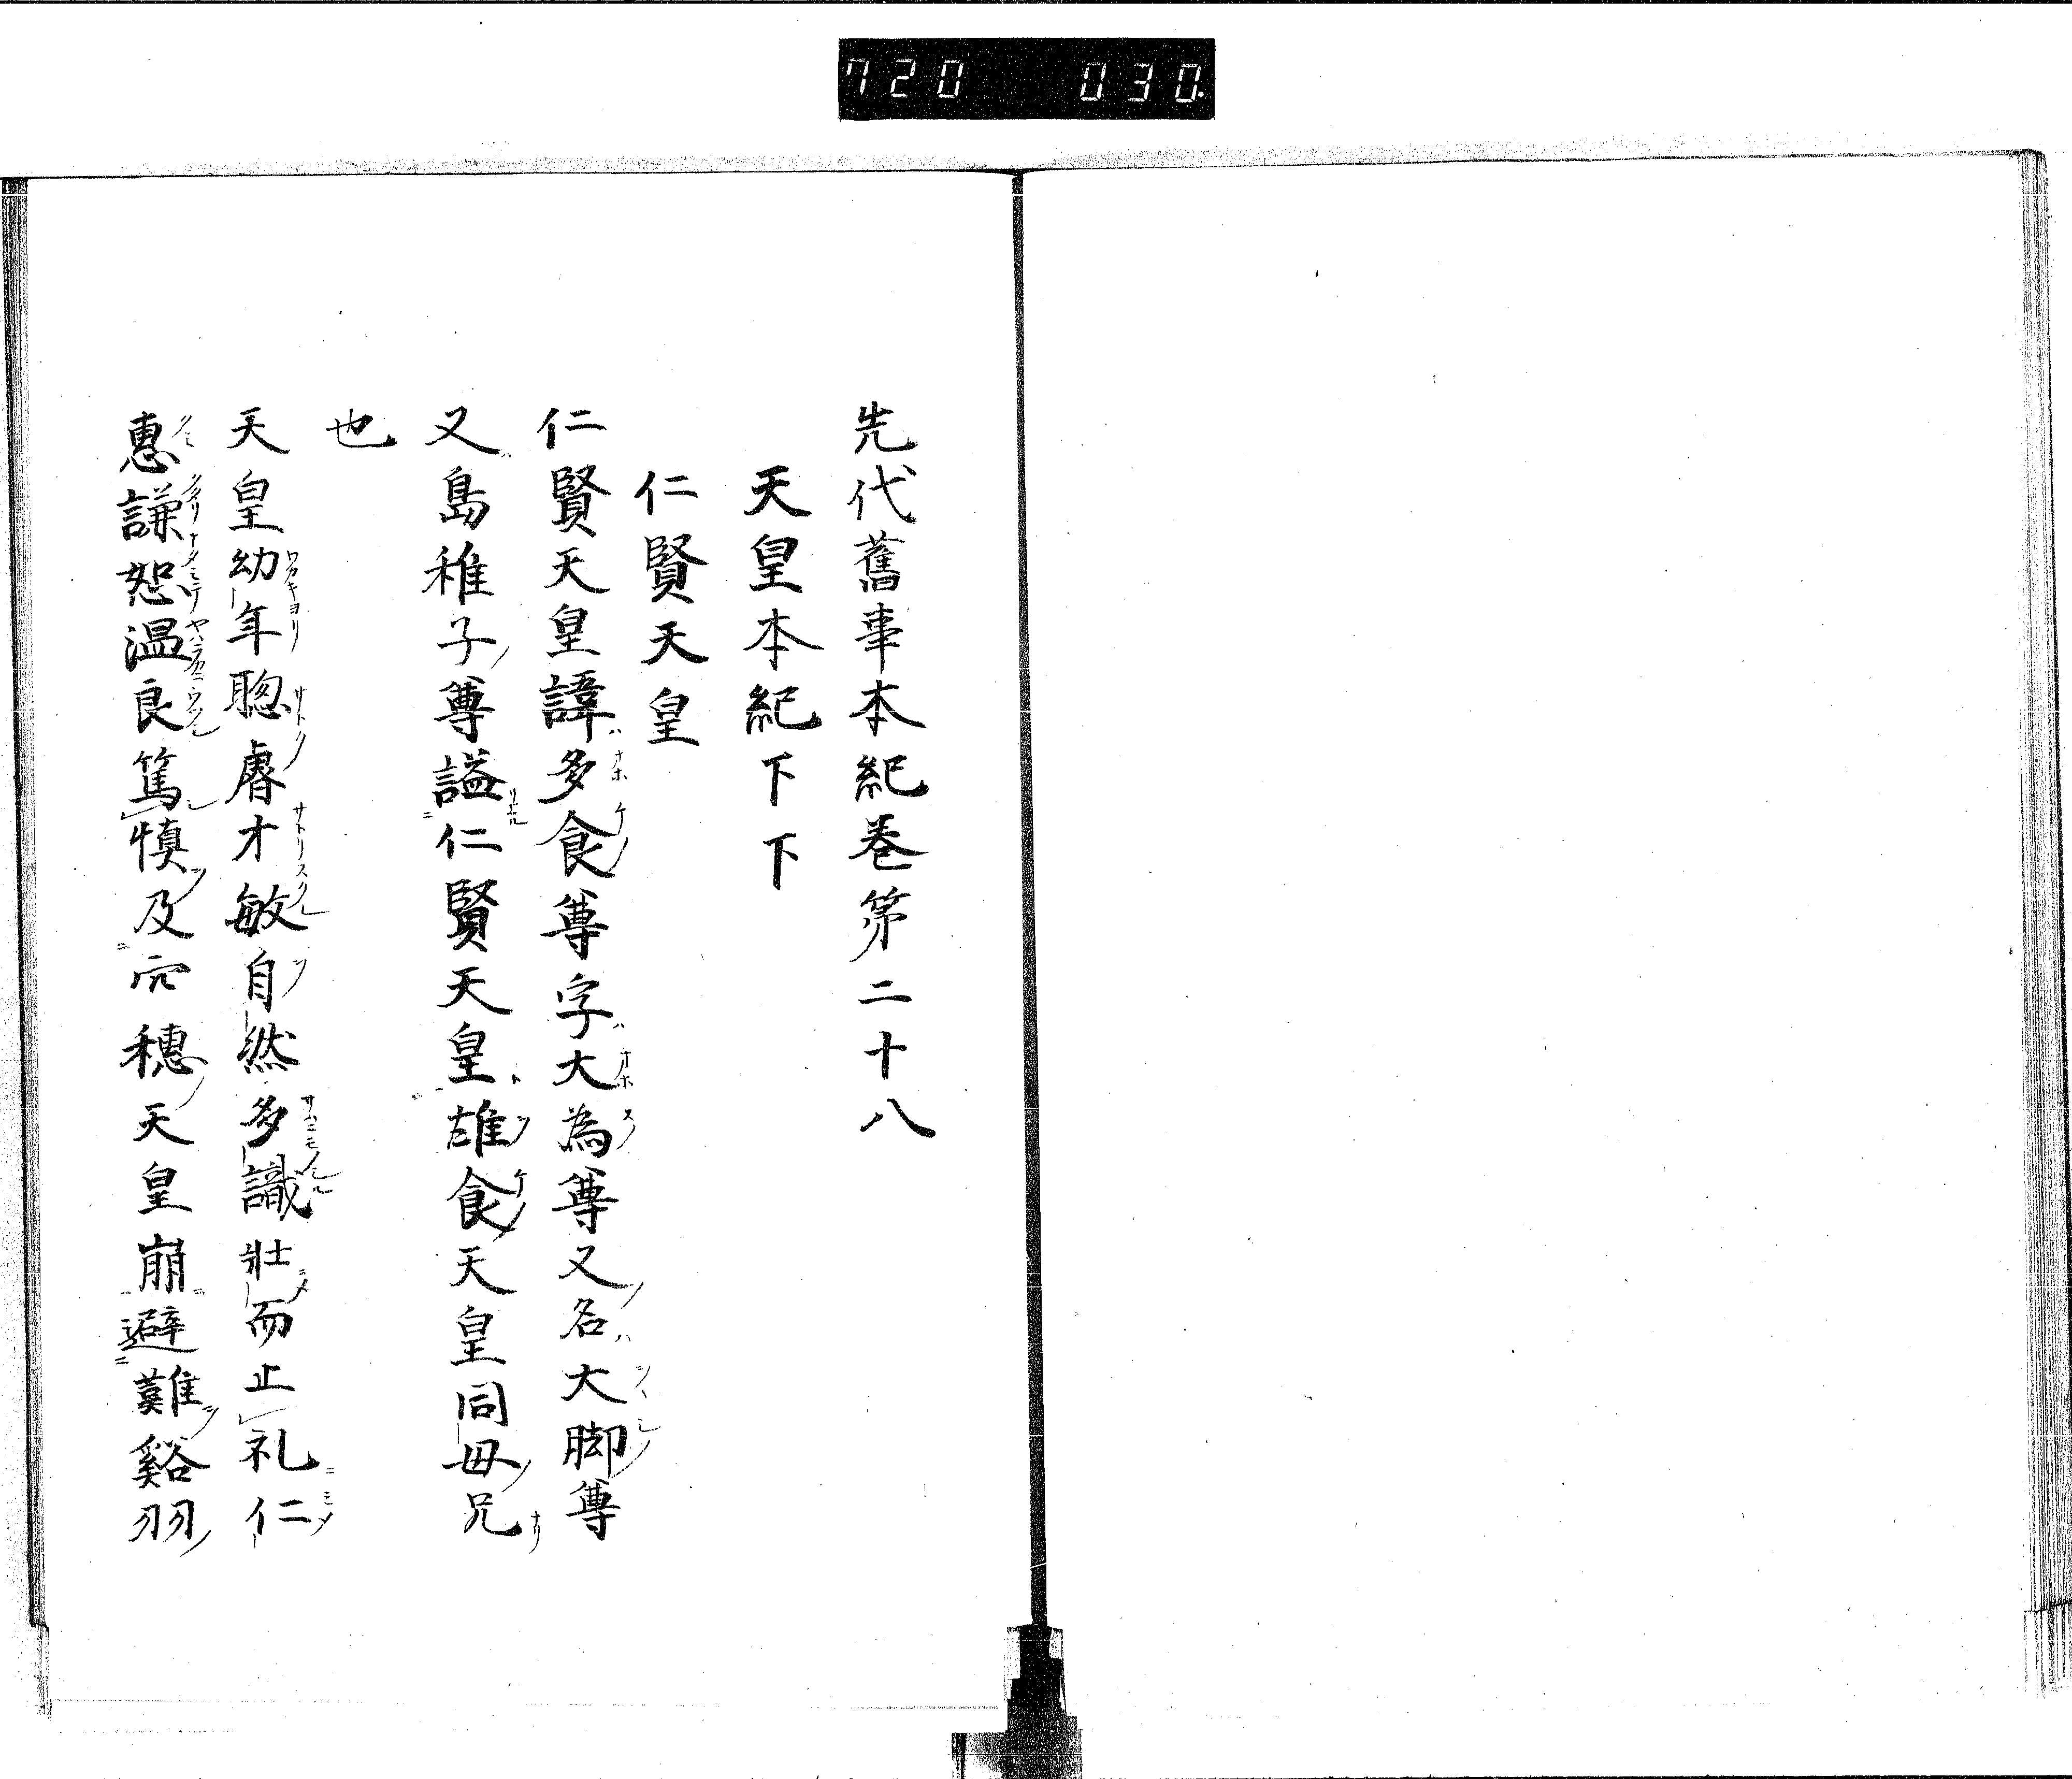 720 030
先代舊事本紀巻第二十八
天皇本紀下下
仁賢天皇
仁賢天皇諱多食尊字大為尊又名大脚尊
又島稚子尊謚仁賢天皇雄食天皇同母兄
也
天皇幼年聰睿才敏自然多識壯而止礼仁
惠謙恕温良篤慎及穴穗天皇崩避難谿羽